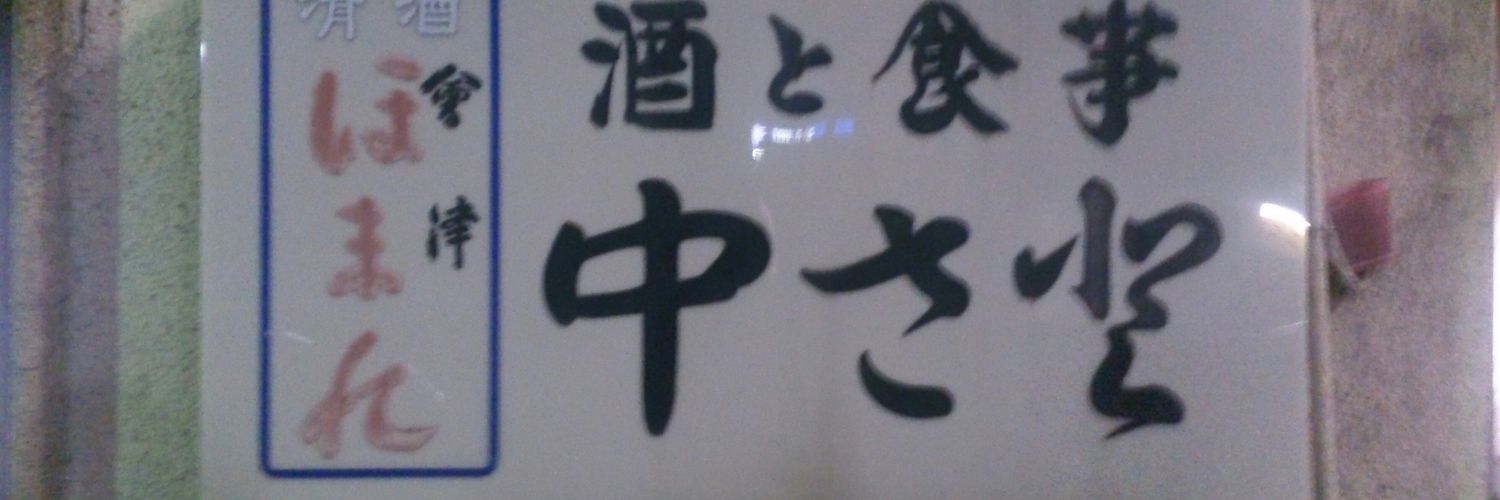 清酒
會津
ほまれ
酒と食事
中さ登